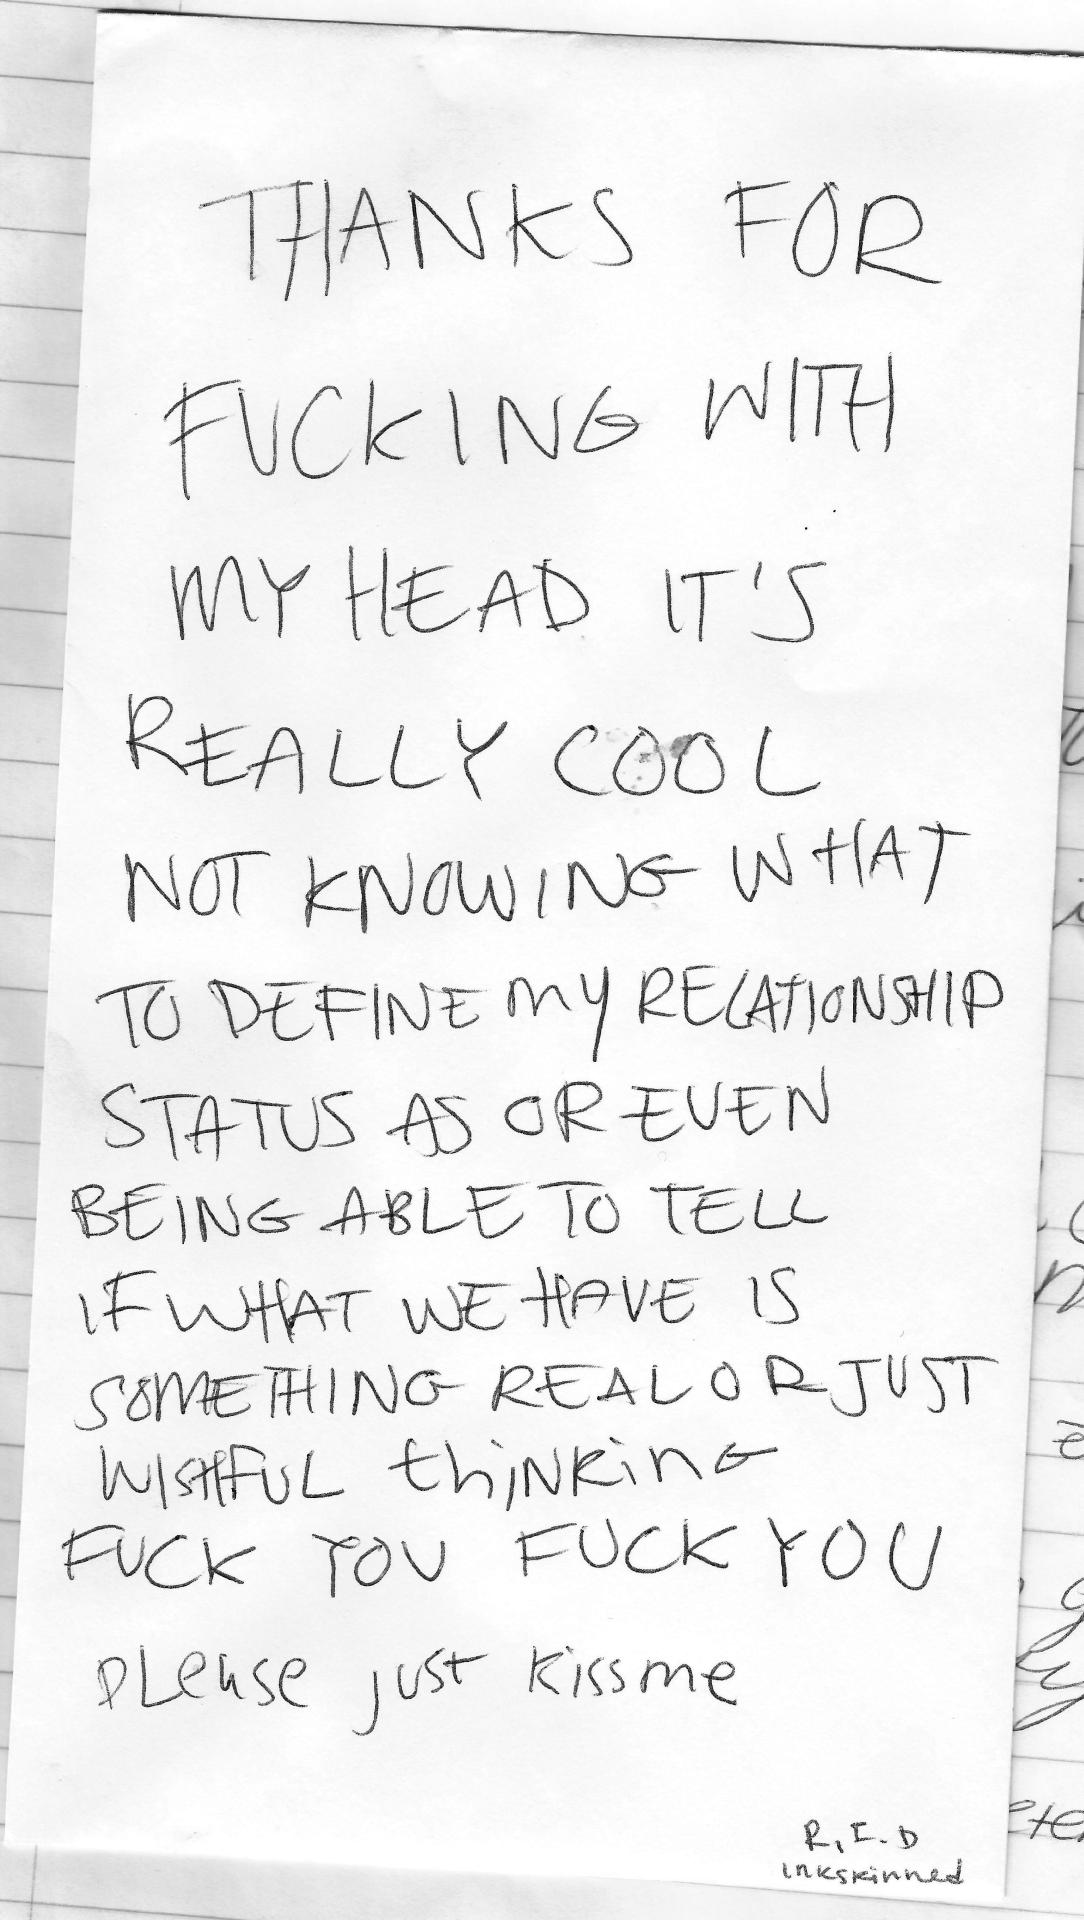 THANKS FOR
FUCKING WITH
MY HEAD IT'S
REALLY COOL
NOT KNOWING WHAT
TO DEFINE MY RELATIONSHIP
STATUS AS OR EVEN
BEING ABLE TO TELL
IF WHAT WE HAVE IS
SOMETHING REAL OR JUST
WISHFUL thinking
FUCK YOU FUCK YOU
please just kiss me
R.I.D
inkskinned